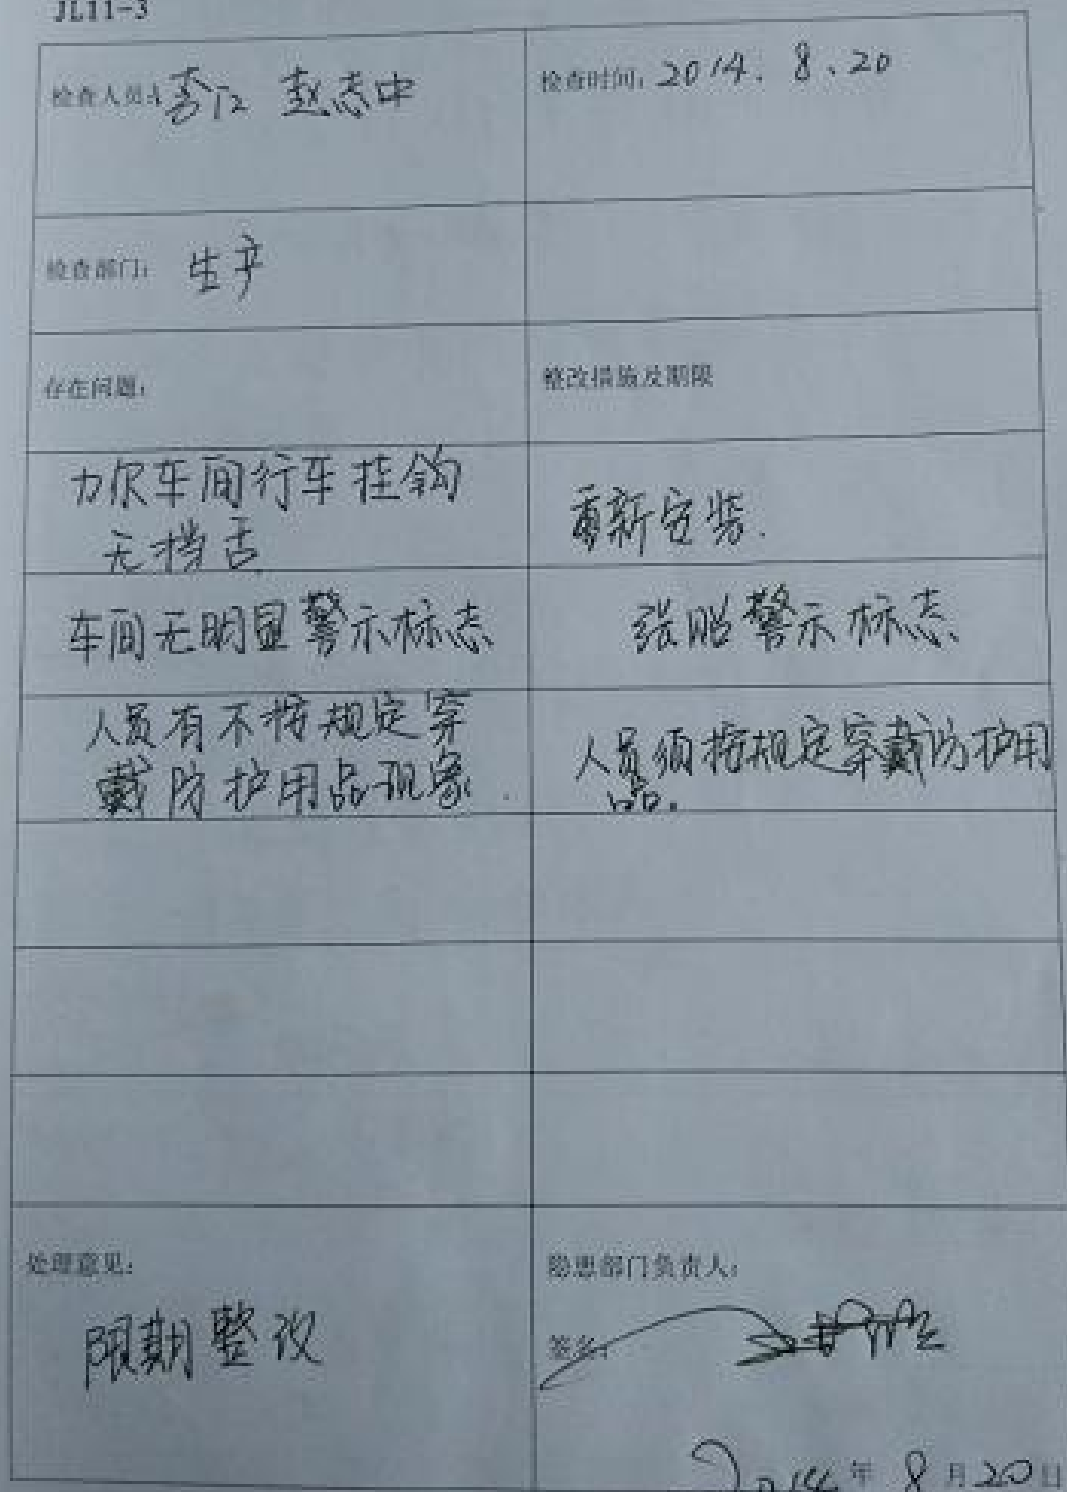 JL11-3
检查人员: 李江 赵志中
检查时间: 2014. 8. 20
检查部门: 生产
存在问题:
整改措施及期限
力尔车间行车挂钩
无挡舌
重新安装.
车间无明显警示标志
张贴警示标志
人员有不按规定穿
戴防护用品现象.
人员须按规定穿戴防护用
品.
处理意见:
隐患部门负责人:
限期整改
签名:
2014年8月20日